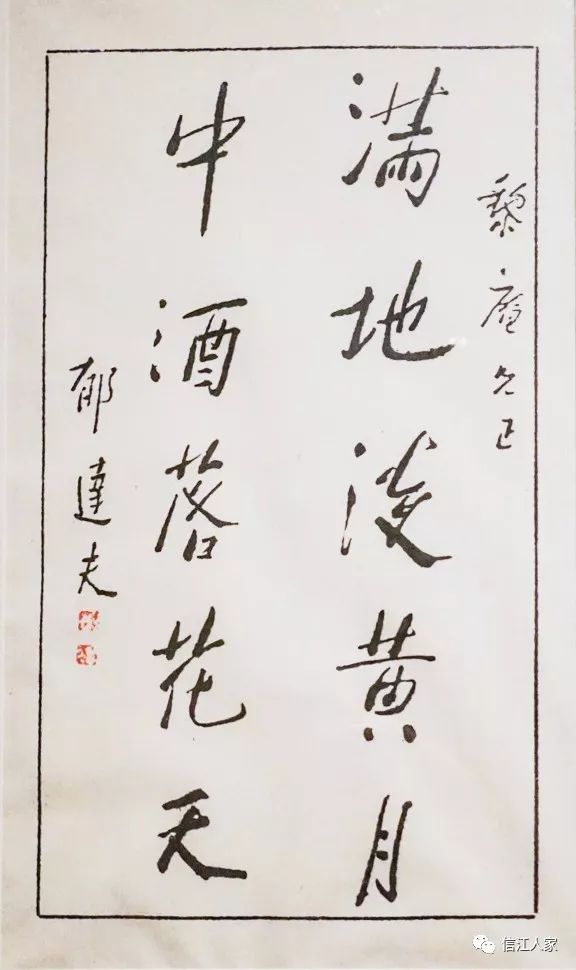 黎庵兄正
滿地淡黄月
中酒落花天
郁達夫
信江人家